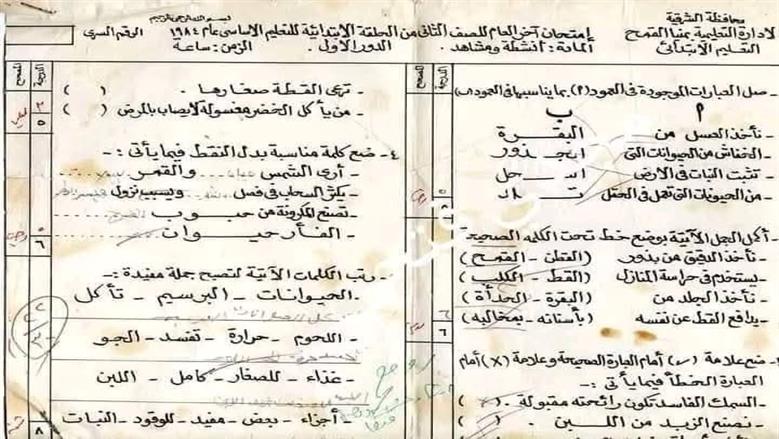 بسم الله الرحمن الرحيم
محافظة الشرقية
إدارة التعليمية بمنيا القمح
التعليم الإبتدائى
إمتحان آخر العام للصف الثانى من الحلقة الابتدائية للتعليم الاساسى عام ١٩٨٤
المادة: أنشطة ومشاهد . الدور الأول الزمن: ساعة الرقم السرى
الدرجة
المصحح
صل العبارات الموجودة فى العمود (م) بما يناسبها فى العمود (ب)
م ب
- نأخذ العسل من البقرة
- الخفاش من الحيوانات التى الجذور
- تثبت النبات فى الأرض النحل
- من الحيوانات التى تعمل فى الحقل تلد
أكمل الجمل الآتية بوضع خط تحت الكلمة الصحيحة
- نأخذ الدقيق من بذور (القطن - القمح)
- يستخدم فى حراسة المنازل (القط - الكلب)
- نأخذ الجلد من (البقرة - الحدأة)
- يدافع القط عن نفسه (بأسنانه - بمخالبه)
ضع علامة (✓) أمام العبارة الصحيحة وعلامة (X) أمام
العبارة الخطأ فيما يأتى :-
- السمك الفاسد تكون رائحته مقبولة . ( )
- نصنع الزبد من اللبن . ( )
الدرجة
المصحح
- ترعى القطة صغارها . ( )
- من يأكل الخضر مغسولة لا يصاب بالمرض ( )
٤- ضع كلمة مناسبة بدل النقط فيما يأتى :-
- أرى الشمس والقمر
- يكثر السحاب فى فصل ويسبب نزول
- تصنع المكرونة من حبوب
- الفأر حيوان
رتب الكلمات الآتية لتصبح جملة مفيدة :-
- الحيوانات - البرسيم - تأكل
- اللحوم - حرارة - تفسد - الجو
- غذاء - للصغار - كامل - اللبن
- أجزاء - بعض - مفيد - للوقود - النبات